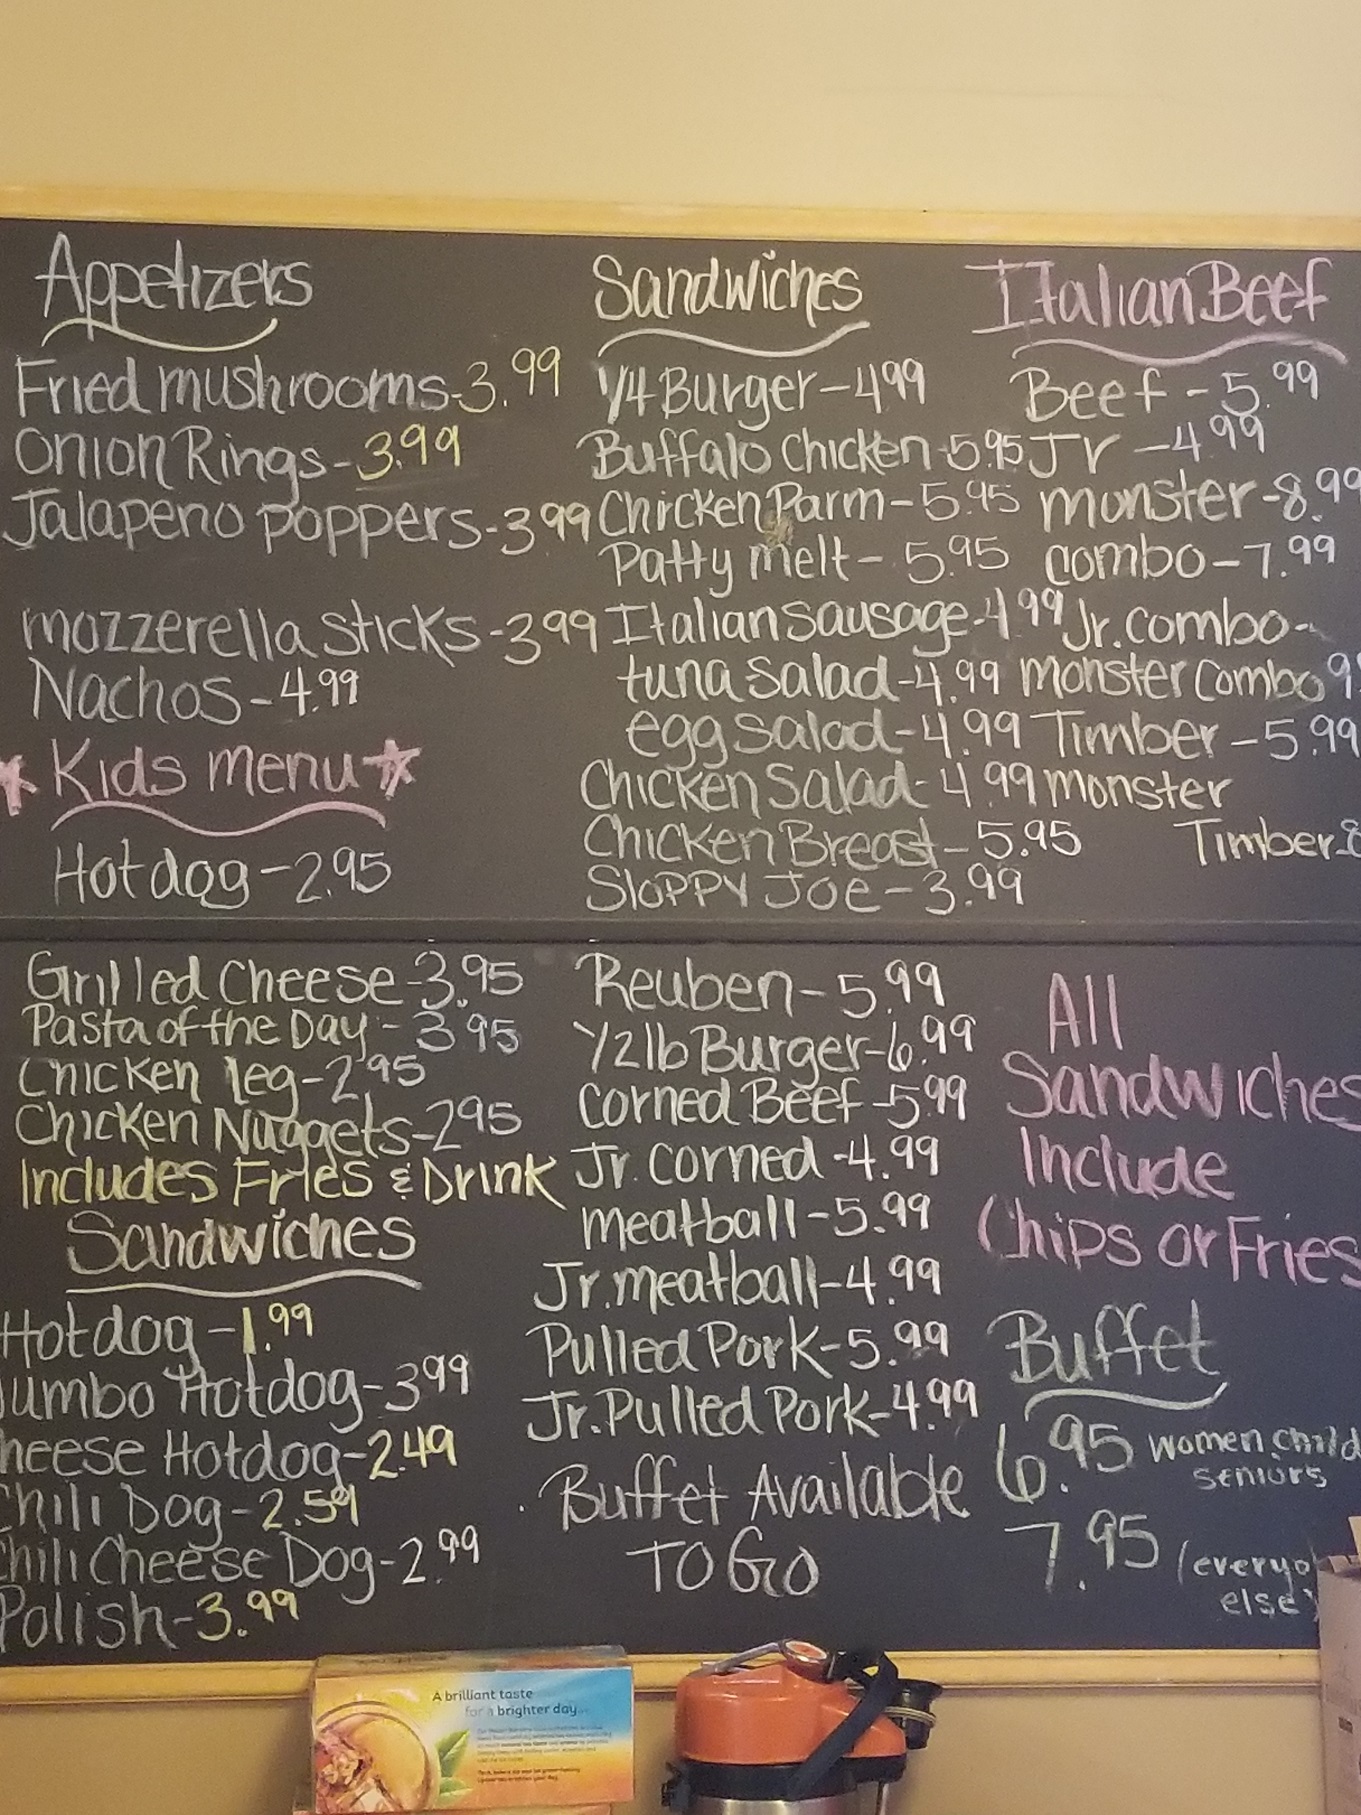 Appetizers
Fried mushrooms-3.99
Onion Rings-3.99
Jalapeno poppers-3.99
mozzerella sticks-3.99
Nachos-4.99
Kids menu
Hotdog-2.95
Grilled Cheese-3.95
Pasta of the Day-3.95
Chicken leg-2.95
Chicken Nuggets-2.95
Includes Fries & Drink
Sandwiches
Hotdog-1.99
Jumbo Hotdog-3.99
heese Hotdog-2.49
Chili Dog-2.59
Chili Cheese Dog-2.99
Polish-3.99
Sandwiches
1/4 Burger-4.99
Buffalo Chicken-5.95
Chicken Parm-5.95
Patty melt-5.95
Italian sausage-4.99
tuna salad-4.99
egg salad-4.99
Chicken Salad-4.99
Chicken Breast-5.95
Sloppy Joe-3.99
Reuben-5.99
1/2 lb Burger-6.99
Corned Beef-5.99
Jr. Corned-4.99
meatball-5.99
Jr. meatball-4.99
Pulled Pork-5.99
Jr. Pulled Pork-4.99
Buffet Available
TO GO
Italian Beef
Beef-5.99
Jr-4.99
monster-8.99
combo-7.99
Jr. combo-
monster combo 9.
Timber-5.99
monster
Timber-8
All
Sandwiches
Include
Chips or Fries
Buffet
6.95 women child
seniors
7.95 (everyo
else)
A brilliant taste
for a brighter day...